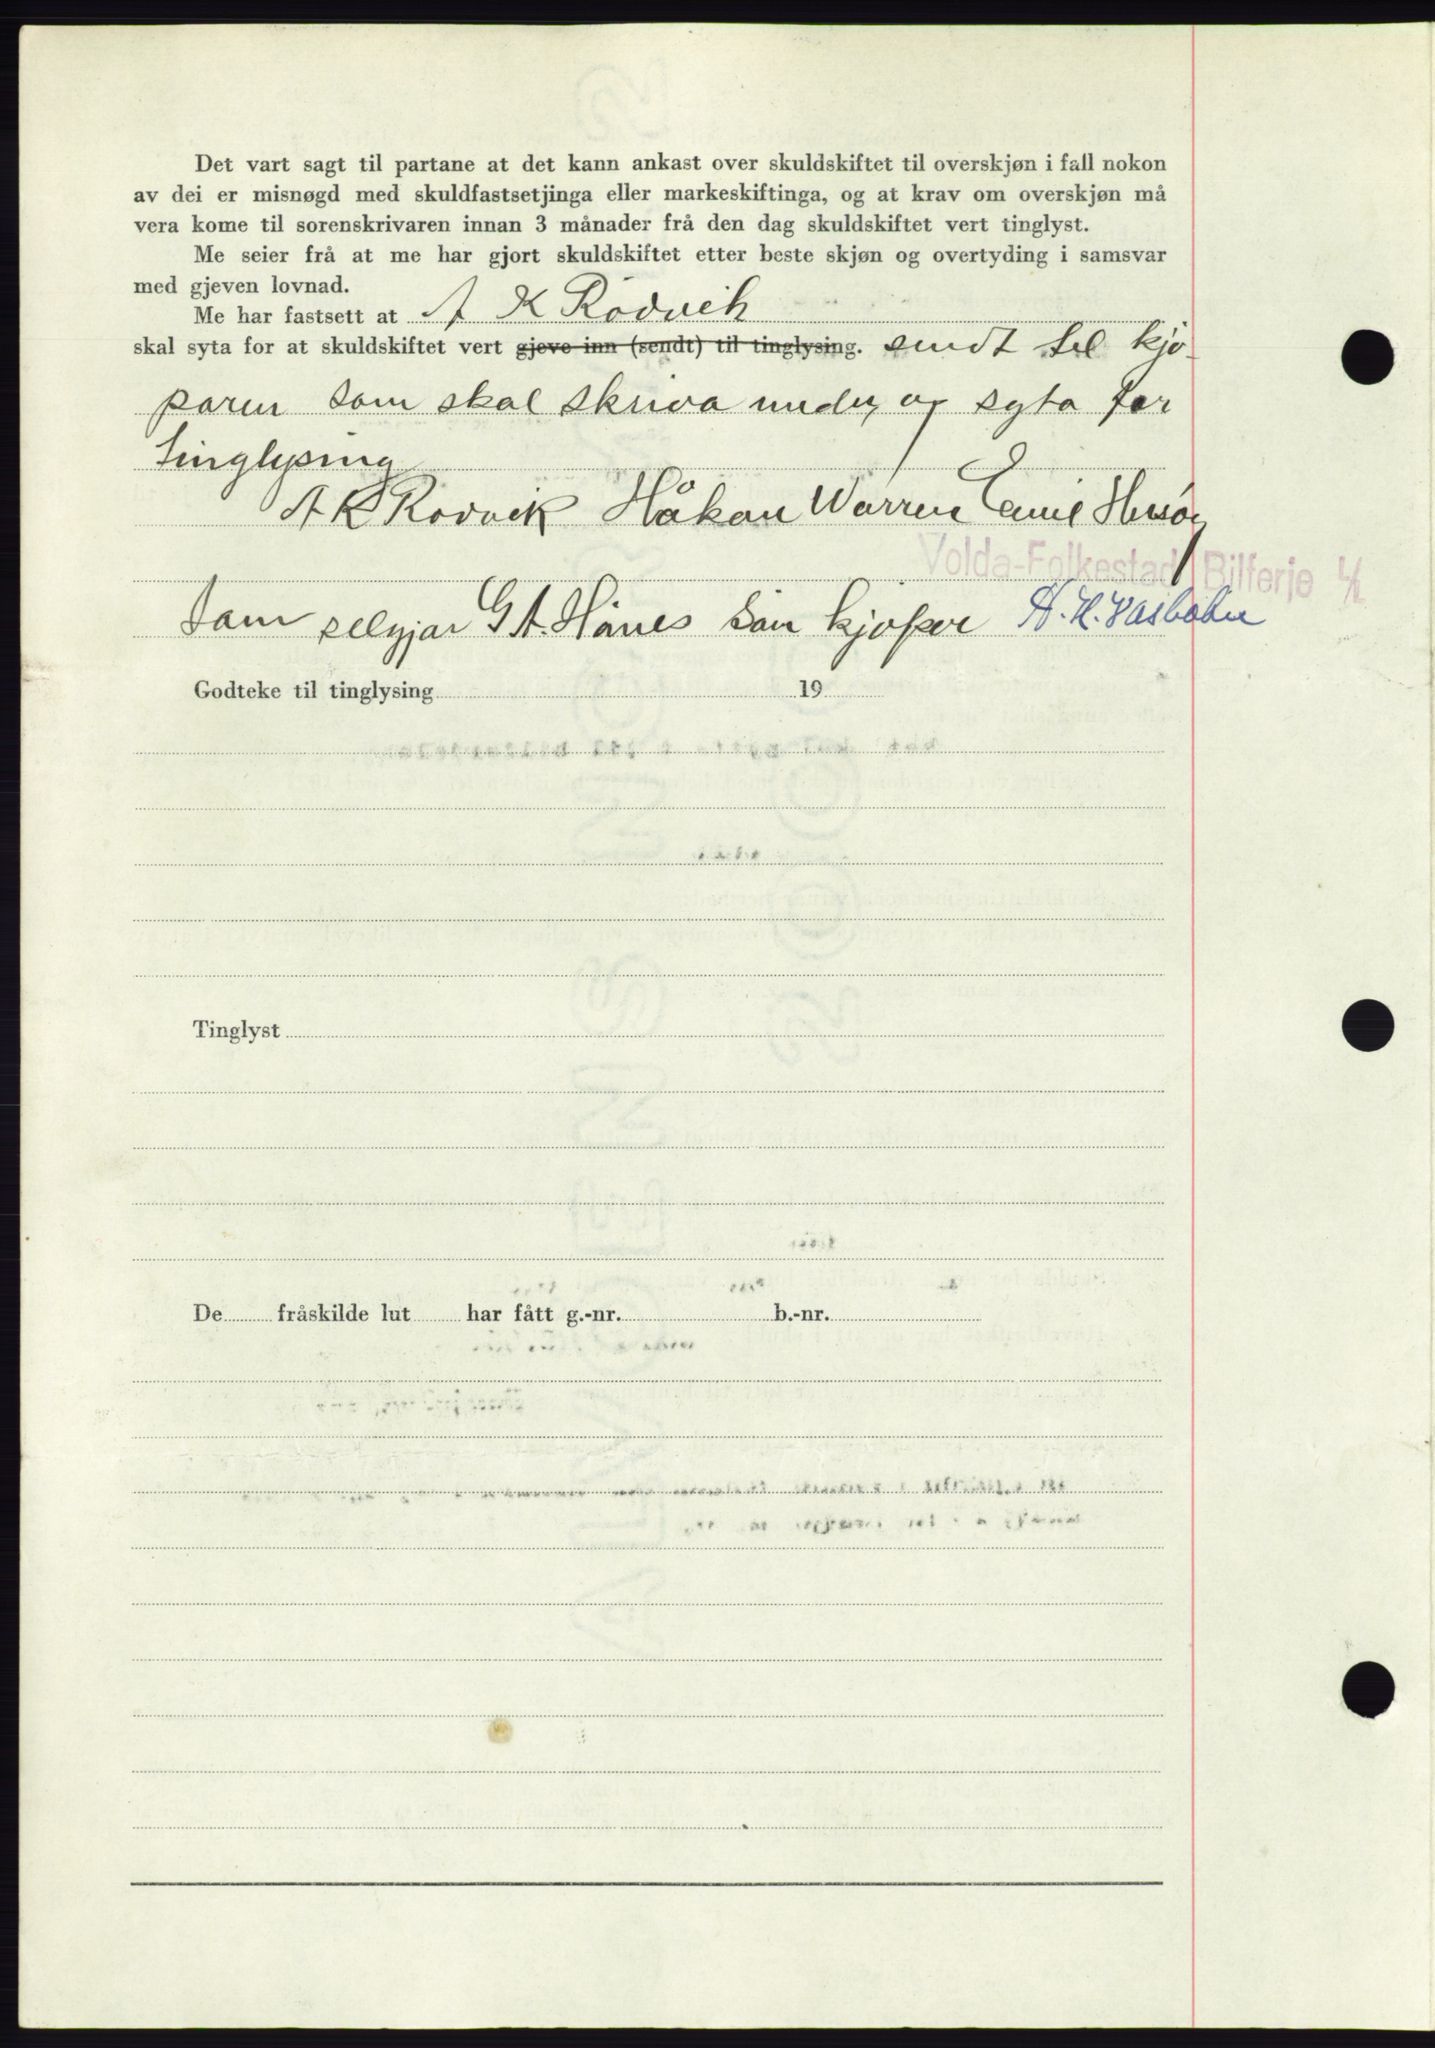 Det vart sagt til partane at det kann ankast over skuldskiftet til overskjøn i fall nokon
av dei er misnøgd med skuldfastsetjinga eller markeskiftinga, og at krav om overskjøn må
vera kome til sorenskrivaren innan 3 månader frå den dag skuldskiftet vert tinglyst.
Me seier frå at me har gjort skuldskiftet etter beste skjøn og overtyding i samsvar
med gjeven lovnad.
Me har fastsett at A K Rödvik
skal syta for at skuldskiftet vert gjeve inn (sendt) til tinglysing. sendt til kjø-
paren som skal skriva under og syta for
tinglysing
A K Rodvik Håkon Warren Emil
Volda-Folkestad Bilferje
Som selgjar G A. Hånes Som kjøper
Godteke til tinglysing 19
Tinglyst
De fråskilde lut har fått g.-nr. b.-nr.